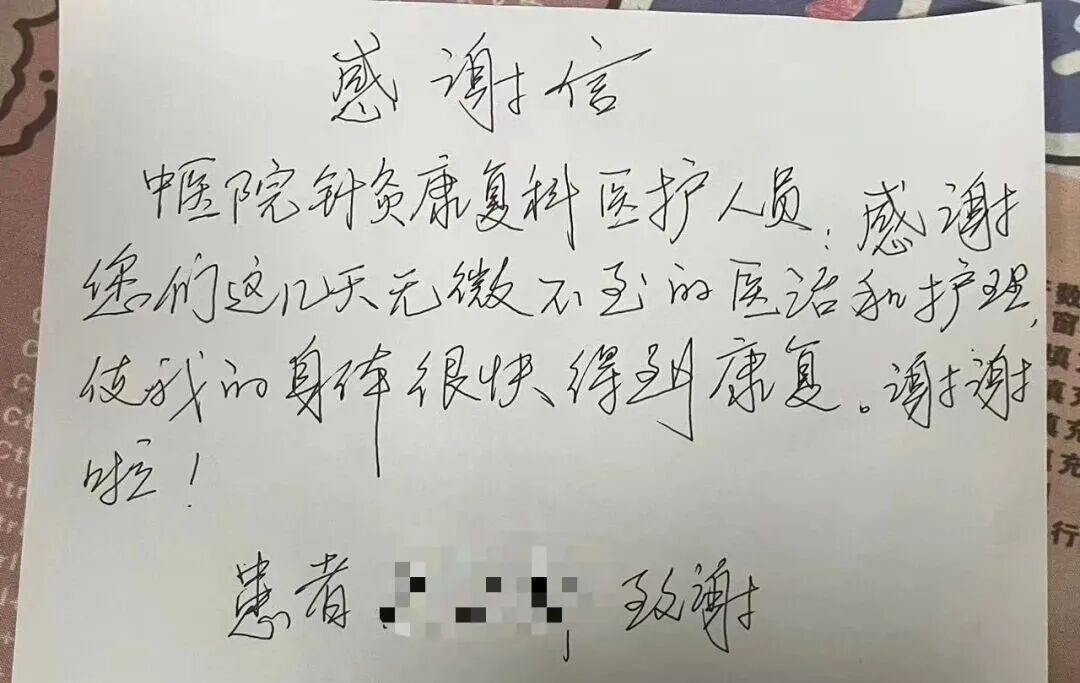 感谢信
中医院针灸康复科医护人员：感谢
您们这几天无微不至的医治和护理，
使我的身体很快得到康复。谢谢
啦！
患者 致谢
数
窗
填充
填充
填充
行